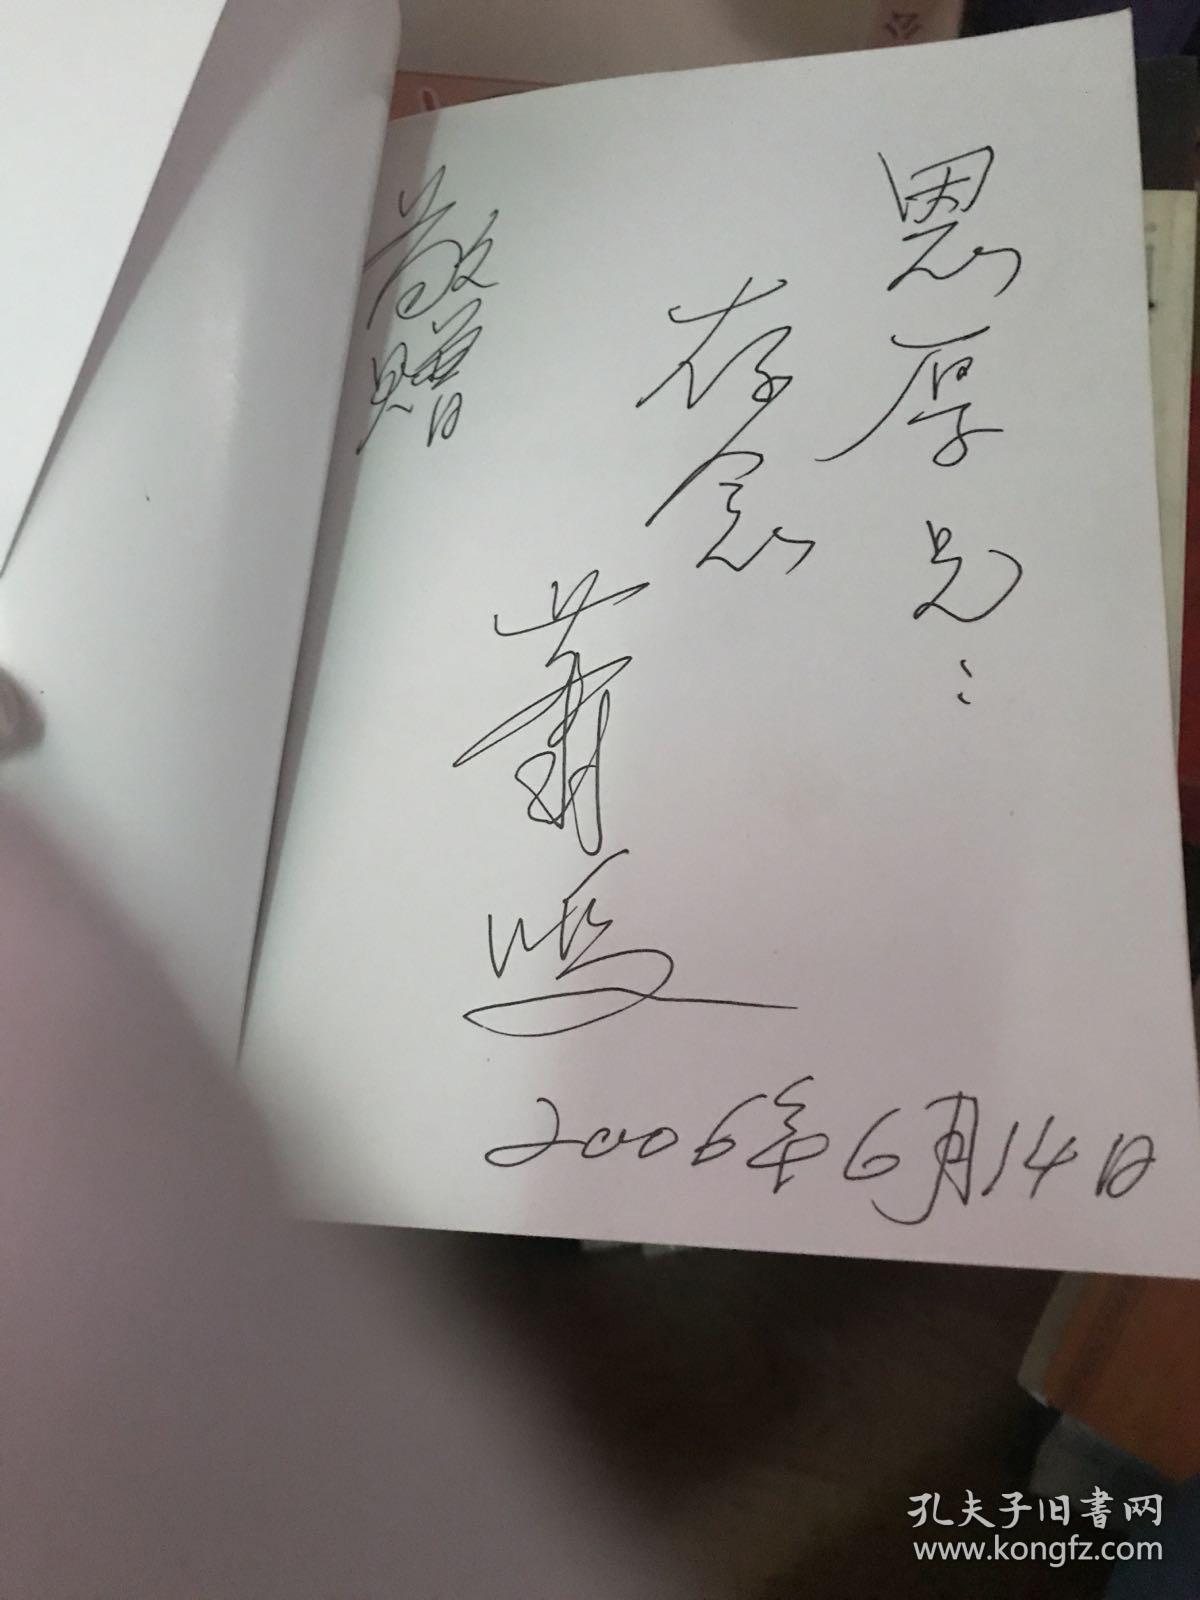 恩厚兄：
存念
萧鸿
敬赠
2006年6月14日
孔夫子旧书网
www.kongfz.com